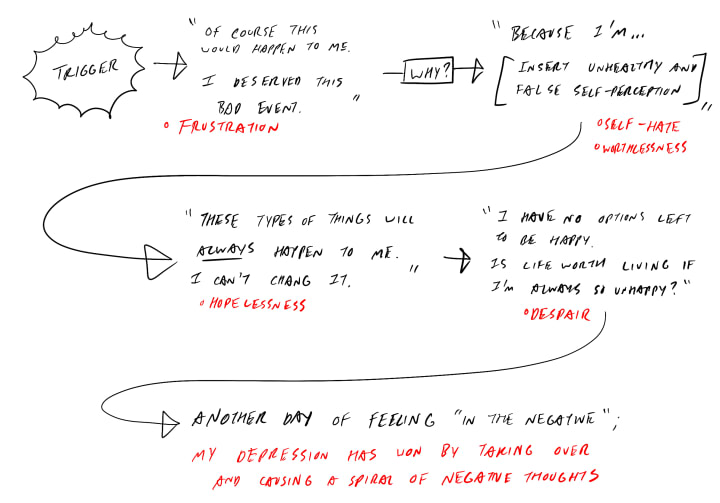 TRIGGER
"OF COURSE THIS
WOULD HAPPEN TO ME.
I DESERVED THIS
BAD EVENT."
FRUSTRATION
WHY?
"BECAUSE I'M...
[INSERT UNHEALTHY AND
FALSE SELF-PERCEPTION]"
SELF-HATE
WORTHLESSNESS
"THESE TYPES OF THINGS WILL
ALWAYS HAPPEN TO ME.
I CAN'T CHANG IT."
HOPELESSNESS
"I HAVE NO OPTIONS LEFT
TO BE HAPPY.
IS LIFE WORTH LIVING IF
I'M ALWAYS SO UNHAPPY?"
DESPAIR
ANOTHER DAY OF FEELING "IN THE NEGATIVE";
MY DEPRESSION HAS WON BY TAKING OVER
AND CAUSING A SPIRAL OF NEGATIVE THOUGHTS